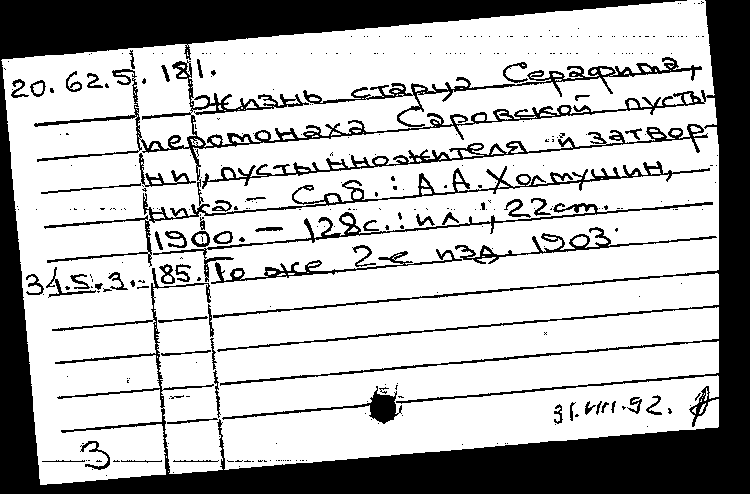 20.62.5.181.
Жизнь старца Серафима,
иеромонаха Саровской пусты-
ни, пустынножителя и затвор-
ника. – Спб.: А.А.Холмушин,
1900. – 128с.: ил.; 22ст.
34.5.3.185. То же 2-е изд. 1903.
31.VIII.92.
З